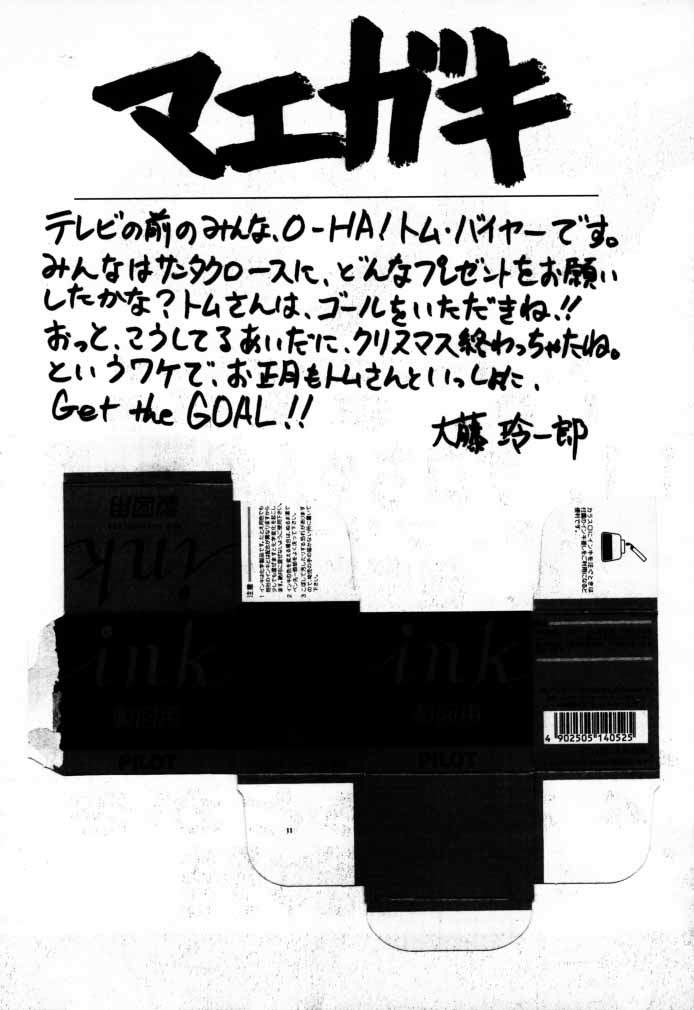 マエガキ
テレビの前のみんな、O-HA!トム・バイヤーです。
みんなはサンタクロースに、どんなプレゼントをお願い
したかな?トムさんは、ゴールをいただきね!!
おっと、こうしてるあいだに、クリスマス終わっちゃたね。
というワケで、お正月もトムさんといっしょに、
Get the GOAL!!
大藤 玲一郎
ink
注意
ink
ink
PILOT
PILOT
4 902505 140525
11